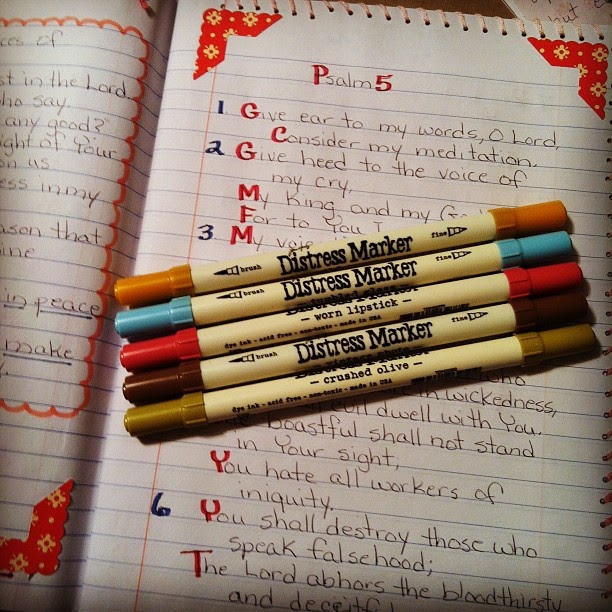 ces of
st in the Lord
ho say
any good?"
ght of Your
on us
ess in my
ason that
ine
in peace
make
Psalm 5
1 Give ear to my words, O Lord,
Consider my meditation.
2 Give heed to the voice of
my cry,
My King and my G
For to You I
3 My voice
brush Distress Marker fine
brush Distress Marker fine
Distress Marker
- worn lipstick -
dye ink - acid free - non-toxic - made in USA
brush Distress Marker fine
Distress Marker
- crushed olive -
dye ink - acid free - non-toxic - made in USA
who
wickedness,
evil dwell with You.
boastful shall not stand
in Your sight,
You hate all workers of
iniquity.
6 You shall destroy those who
speak falsehood;
The Lord abhors the bloodthirsty
and deceitful